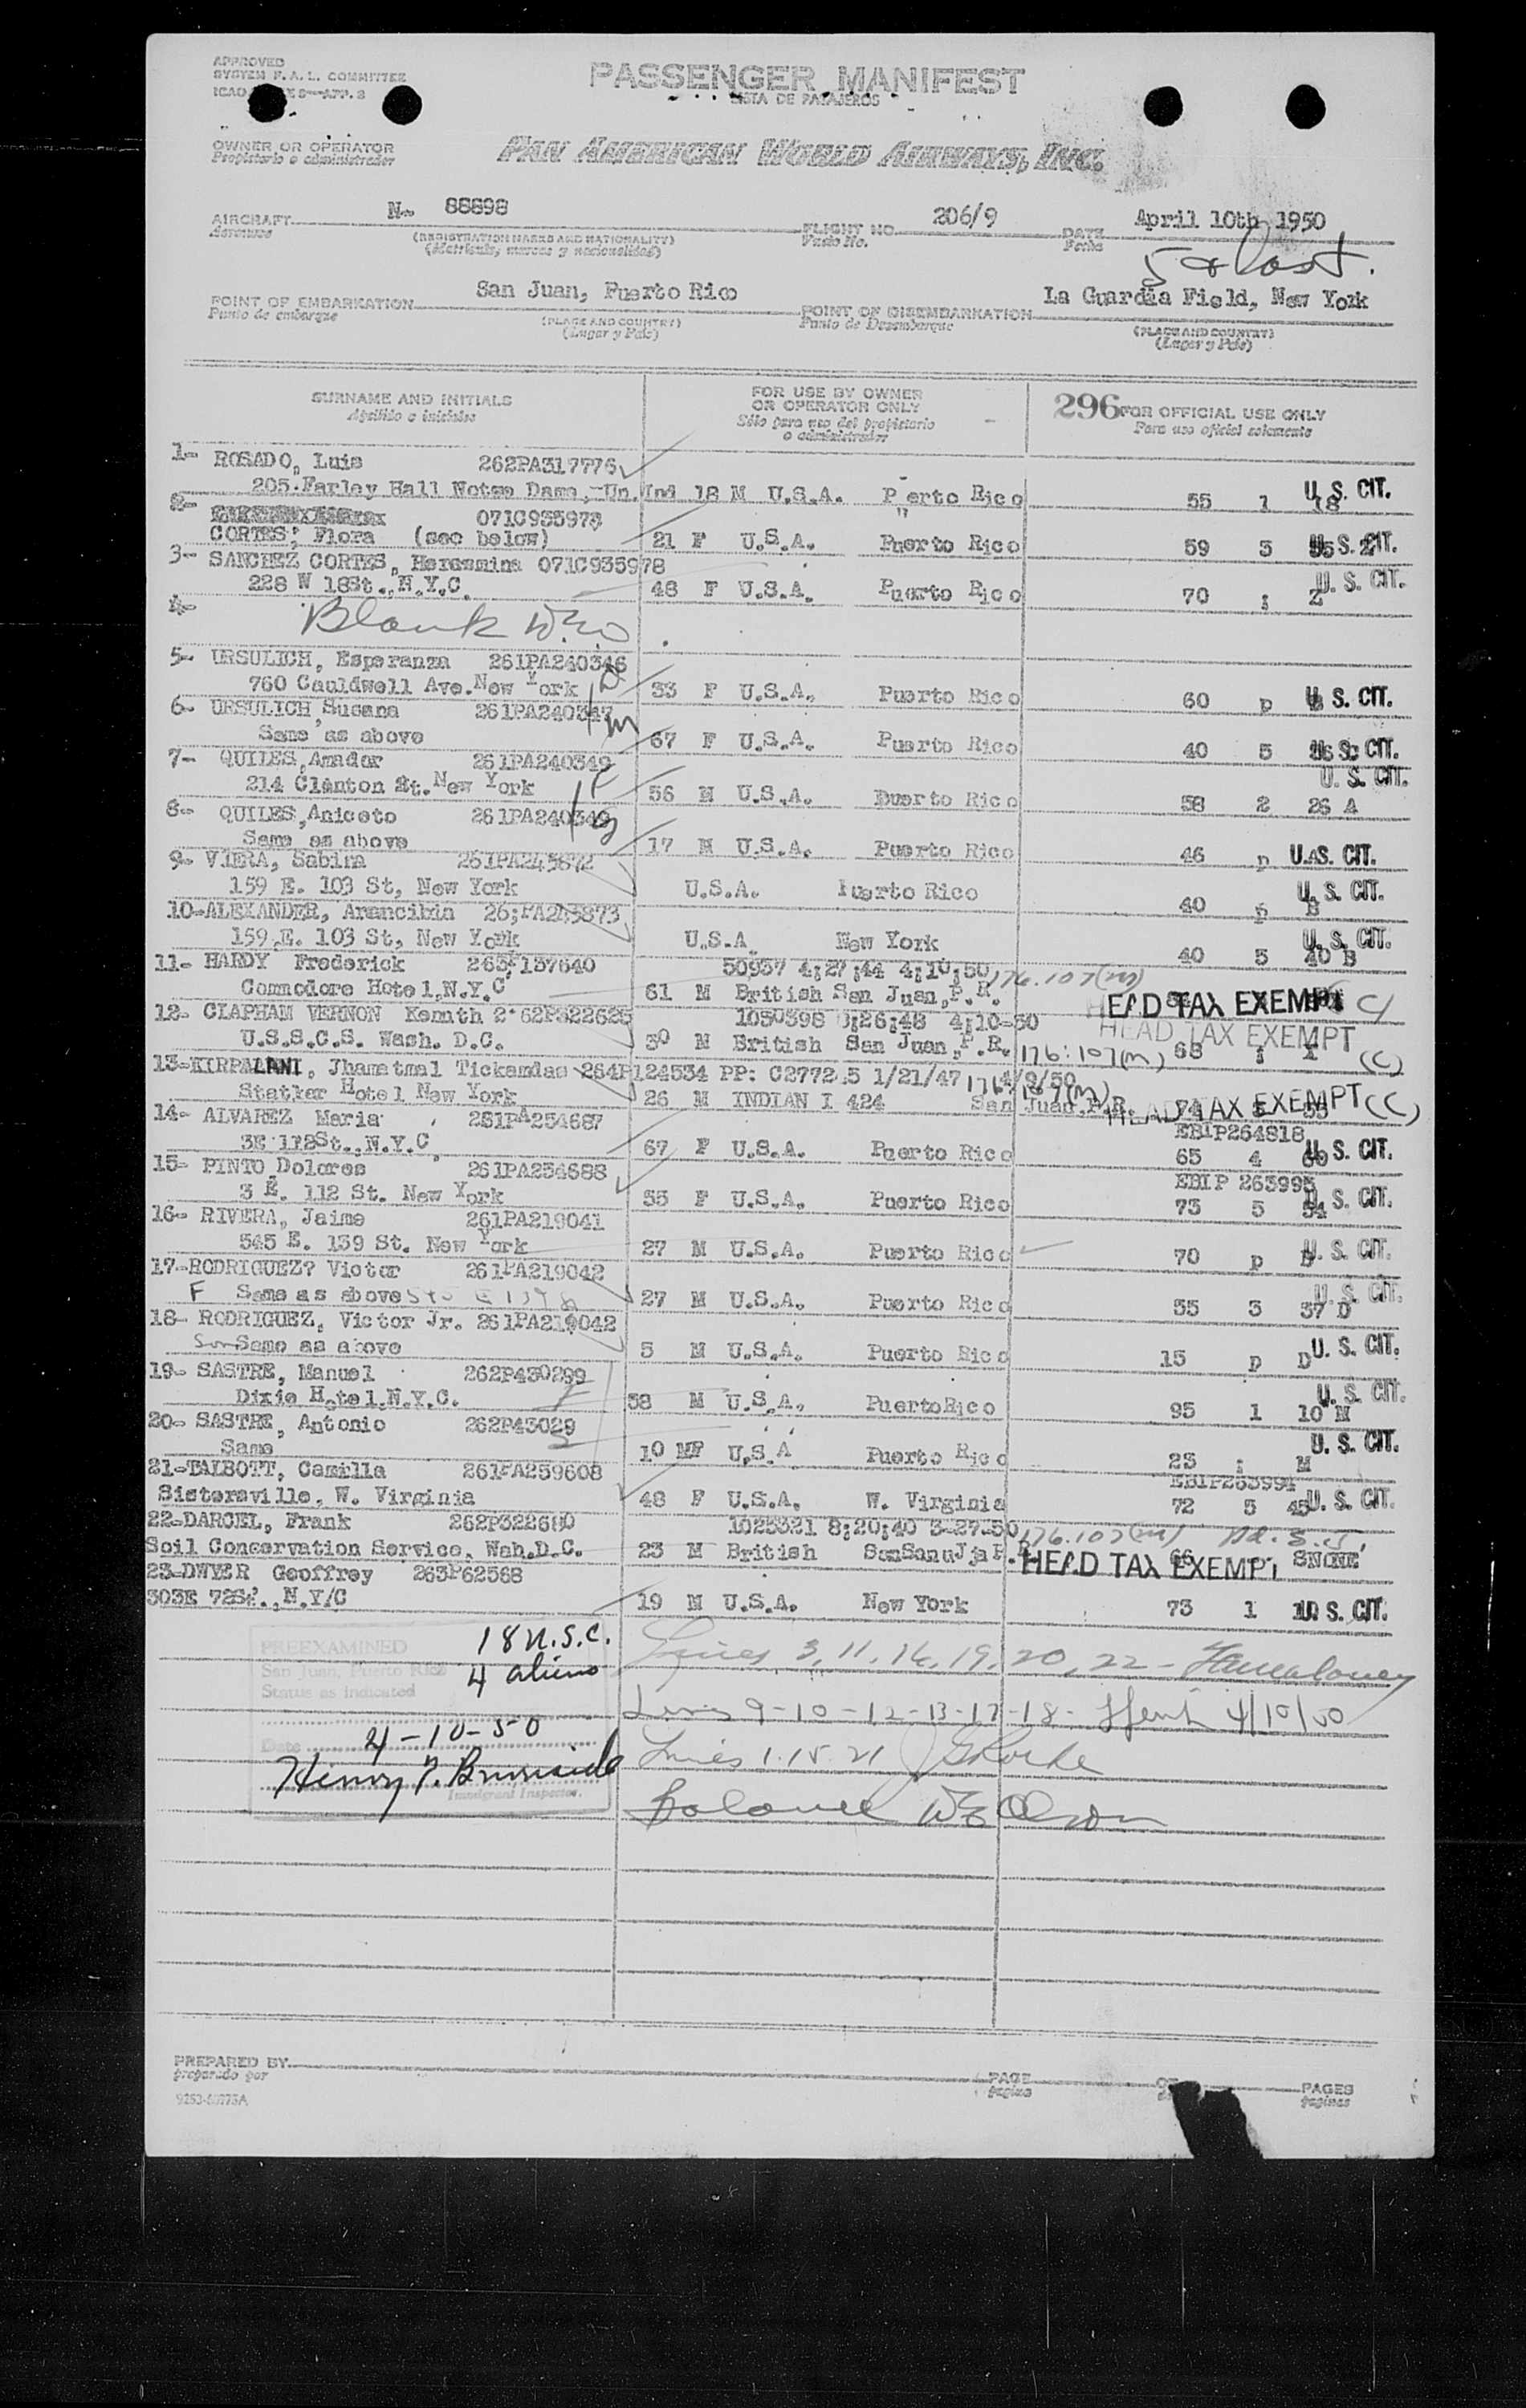 APPROVED
SYSTEM F. A. L. COMMITTEE
PASSENGER MANIFEST
LISTA DE PASAJEROS
OWNER OR OPERATOR
Propietario o administrador
PAN AMERICAN WORLD AIRWAYS, INC.
AIRCRAFT N- 88898 FLIGHT NO. 206/9 DATE April 10th 1950
Aeronave (REGISTRATION MARKS AND NATIONALITY) Vuelo No. Fecha
(Matricula, marcas y nacionalidad)
POINT OF EMBARKATION San Juan, Puerto Rico POINT OF DISEMBARKATION La Guardia Field, New York
Punto de embarque (PLACE AND COUNTRY) Punto de Desembarque (PLACE AND COUNTRY)
(Lugar y País) (Lugar y País)
SURNAME AND INITIALS FOR USE BY OWNER OR OPERATOR ONLY 296 FOR OFFICIAL USE ONLY
Apellido e iniciales Sólo para uso del propietario o administrador Para uso oficial solamente
1- ROSADO, Luis 262PA317776
205 Farley Hall Notme Dame, Un. Ind 18 M U.S.A. P erto Rico 55 1 18 U. S. CIT.
2- 071C935978
CORTES; Flora (see below) 21 F U.S.A. Puerto Rico 59 3 U. S. CIT.
3- SANCHEZ CORTES, Heresmina 071C935978
228 W 18St., N.Y.C. 48 F U.S.A. Puerto Rico 70 ; Z U. S. CIT.
4- Blank
5- URSULICH, Esperanza 261PA240346
760 Cauldwell Ave. New York 33 F U.S.A. Puerto Rico 60 p U. S. CIT.
6- URSULICH, Susana 261PA240347 m
Same as above 67 F U.S.A. Puerto Rico 40 5 U. S. CIT.
7- QUILES, Amador 261PA240349 F
214 Clanton St. New York 56 M U.S.A. Duerto Rico 58 2 26 A U. S. CIT.
8- QUILES, Aniceto 261PA240349
Same as above 17 M U.S.A. Puerto Rico 46 p U. S. CIT.
9- VIERA, Sabina 261PA243872
159 E. 103 St, New York U.S.A. Puerto Rico 40 5 B U. S. CIT.
10- ALEXANDER, Arancibia 26;PA243873
159 E. 103 St, New York U.S.A New York 40 5 40 B U. S. CIT.
11- HARDY Frederick 263P137640 50937 4;27;44 4;10;50 176.107(m)
Commodore Hotel, N.Y.C 61 M British San Juan, P.R. HEAD TAX EXEMPT
12- CLAPHAM VERNON Kenith 2*62P322625 1050398 4;10-50 HEAD TAX EXEMPT
U.S.S.C.S. Wash. D.C. 30 M British San Juan, P.R. 176.107(m) 68 ; X (C)
13- KIRPALANI, Jhamatmal Tickamdas 264P124534 PP: C2772.5 1/21/47 4/9/50
Statler Hotel New York 26 M INDIAN I 424 San Juan, P.R. HEAD TAX EXEMPT (C)
14- ALVAREZ Maria 261PA254687 EBIP264818
3E 112St., N.Y.C. 67 F U.S.A. Puerto Rico 65 4 60 U. S. CIT.
15- PINTO Dolores 261PA254688 EBIP 263995
3 E. 112 St. New York 55 F U.S.A. Puerto Rico 73 5 54 U. S. CIT.
16- RIVERA, Jaime 261PA219041
545 E. 139 St. New York 27 M U.S.A. Puerto Rico 70 p U. S. CIT.
17- RODRIGUEZ? Victor 261PA219042
F Same as above 27 M U.S.A. Puerto Rico 55 3 37 D U. S. CIT.
18- RODRIGUEZ, Victor Jr. 261PA219042
Son Same as above 5 M U.S.A. Puerto Rico 15 p D U. S. CIT.
19- SASTRE, Manuel 262P430299
Dixie Hotel, N.Y.C. F 58 M U.S.A. PuertoRico 95 1 10 M U. S. CIT.
20- SASTRE, Antonio 262P43029
Same S 10 MF U.S.A Puerto Rico 23 ; M U. S. CIT.
21- TALBOTT, Camilla 261PA259608 EBIP263994
Sistersville, W. Virginia 48 F U.S.A. W. Virginia 72 5 45 U. S. CIT.
22- DARCEL, Frank 262P322680 1023321 8;20;40 3-27-50 176.107(m)
Soil Conservation Service, Wah.D.C. 23 M British HEAD TAX EXEMPT 66 SNONE
23- DWYER Geoffrey 263P62568
303E 72St., N.Y/C 19 M U.S.A. New York 73 1 10 U. S. CIT.
PREEXAMINED
San Juan, Puerto Rico
Status as indicated
18 U.S.C.
4 aliens
Date 4-10-50
Immigrant Inspector.
Lines 3, 11, 16, 19, 20, 22 -
Lines 9-10-12-13-17-18- 4/10/50
Lines 1. 15. 21
Balance
PREPARED BY PAGE PAGES
preparado por pagina paginas